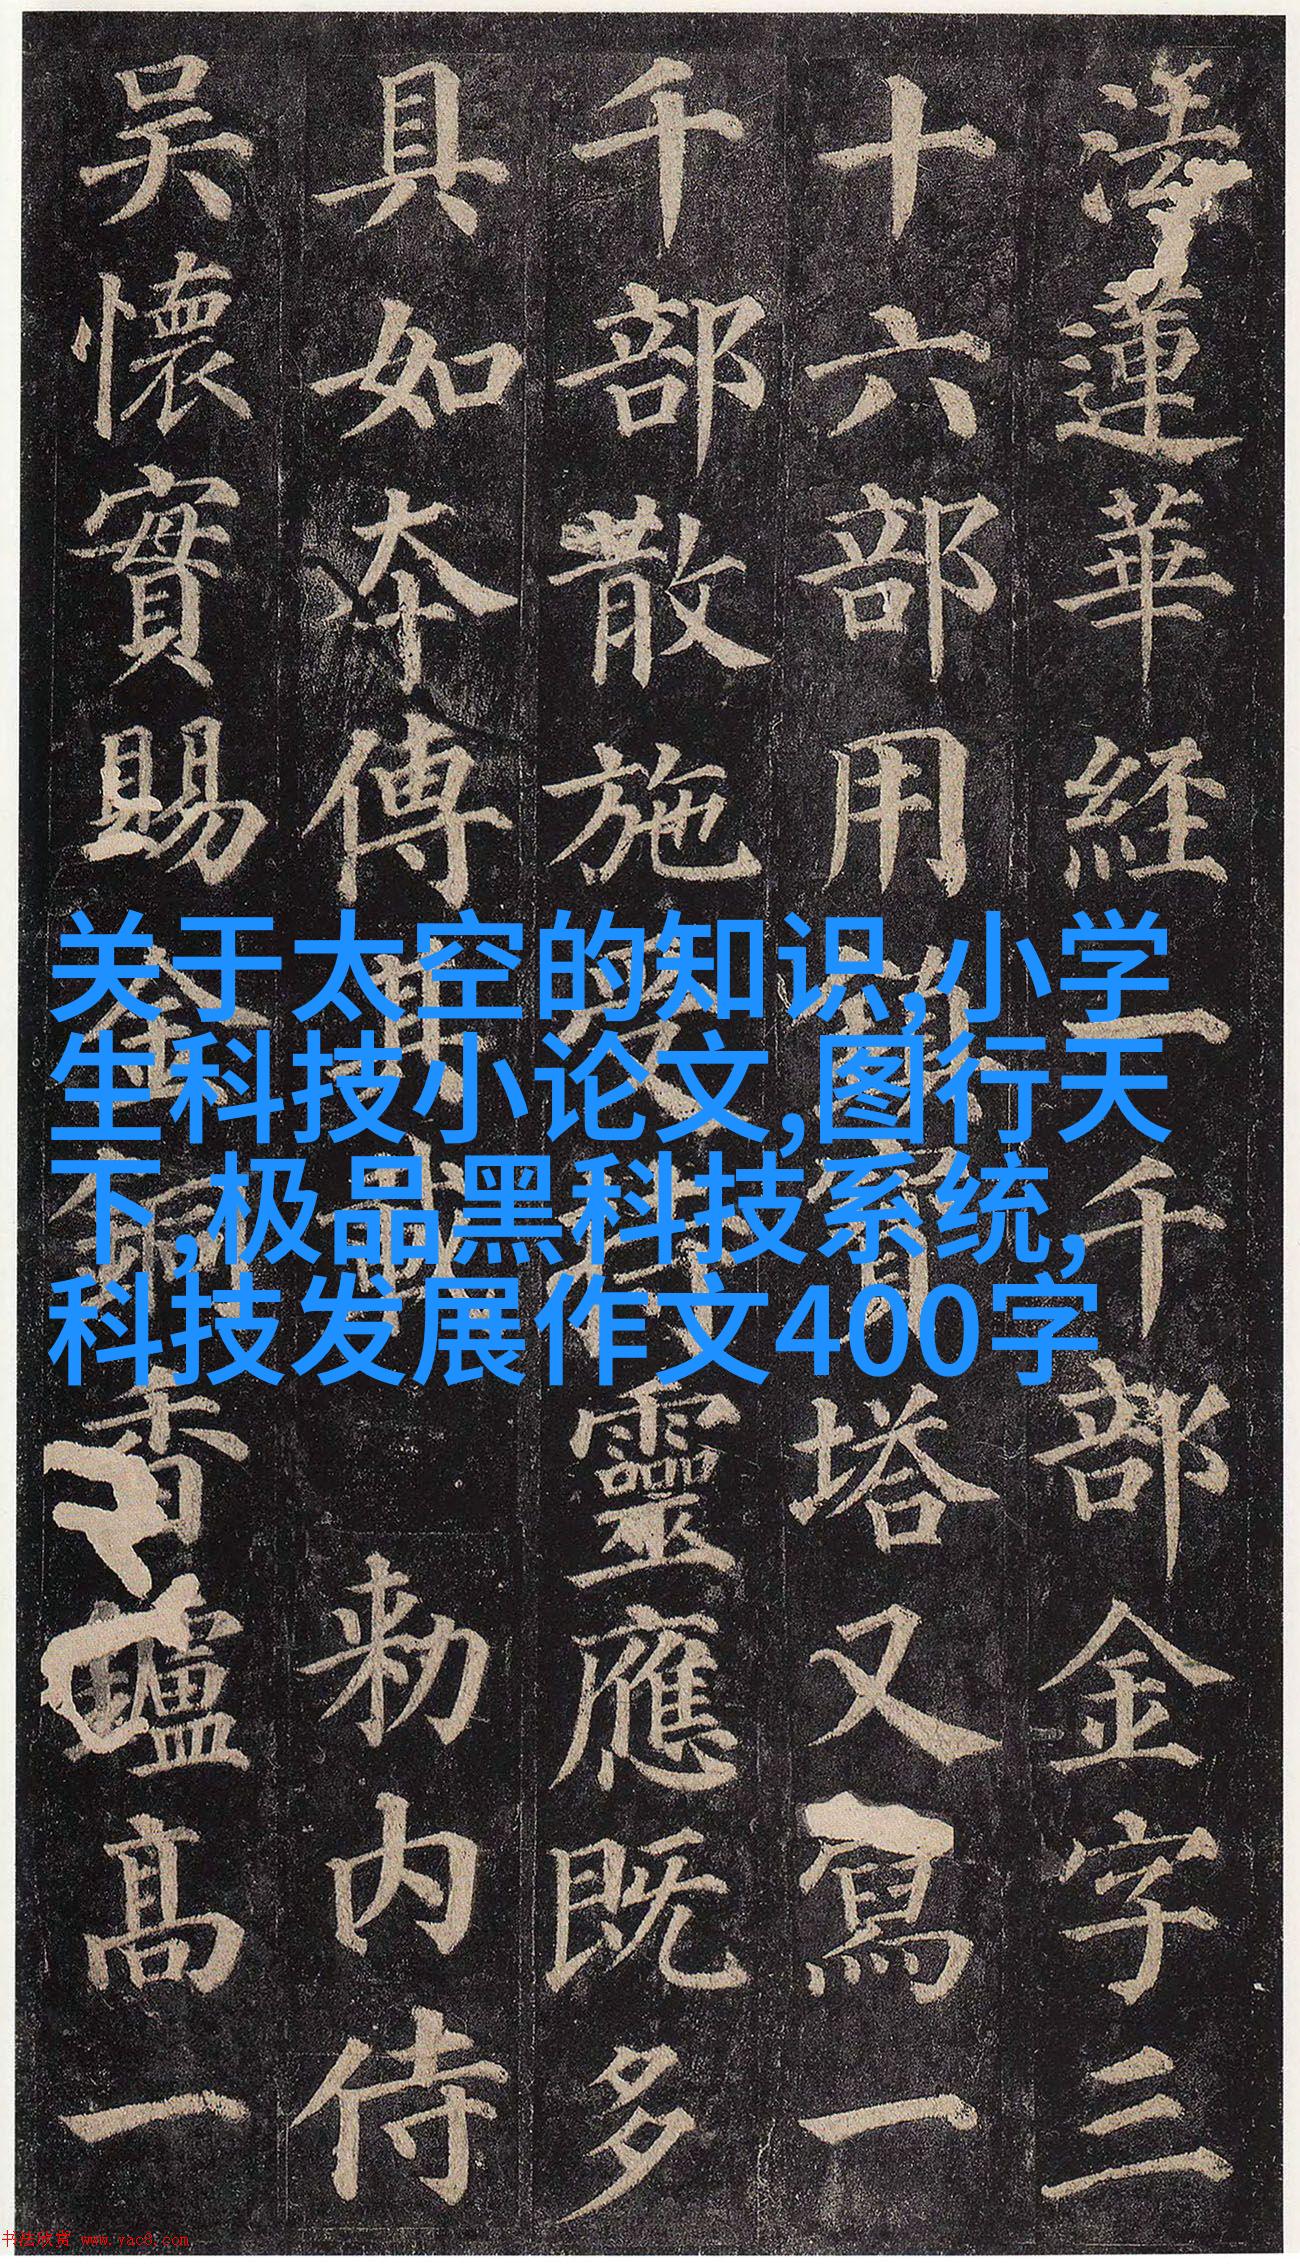 法蓮華経一千部金字三
十六部用鎮寶塔又寫一
千部散施受持靈應既多
具如夲傳其載勅内侍
吴懷實賜金銅香鑪髙一
关于太空的知识,小学
生科技小论文,图行天
下,极品黑科技系统,
科技发展作文400字
书法欣赏 www.yac8.com